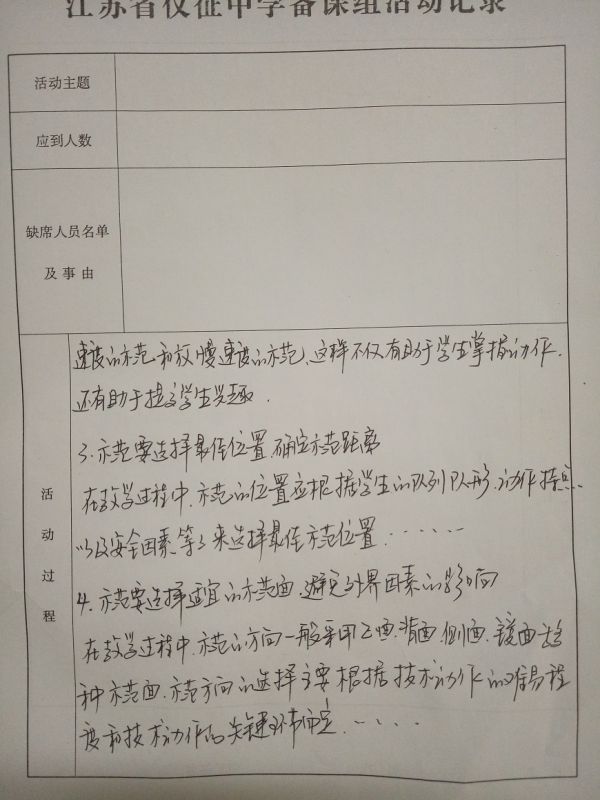 江苏省仪征中学备课组活动记录
活动主题
应到人数
缺席人员名单
及事由
活动过程
速度的示范和放慢速度的示范、这样不仅有助于学生掌握动作.
还有助于提高学生兴趣.
3.示范要选择最佳位置,确定示范距离
在教学过程中,示范的位置应根据学生的队列队形,动作特点、
以及安全因素等来选择最佳示范位置......
4.示范要选择适宜的示范面,避免外界因素的影响
在教学过程中,示范的方向一般采用正面.背面.侧面.镜面
种示范面.示范方向的选择主要根据技术动作的难易程
度和技术动作的关键环节而定.....